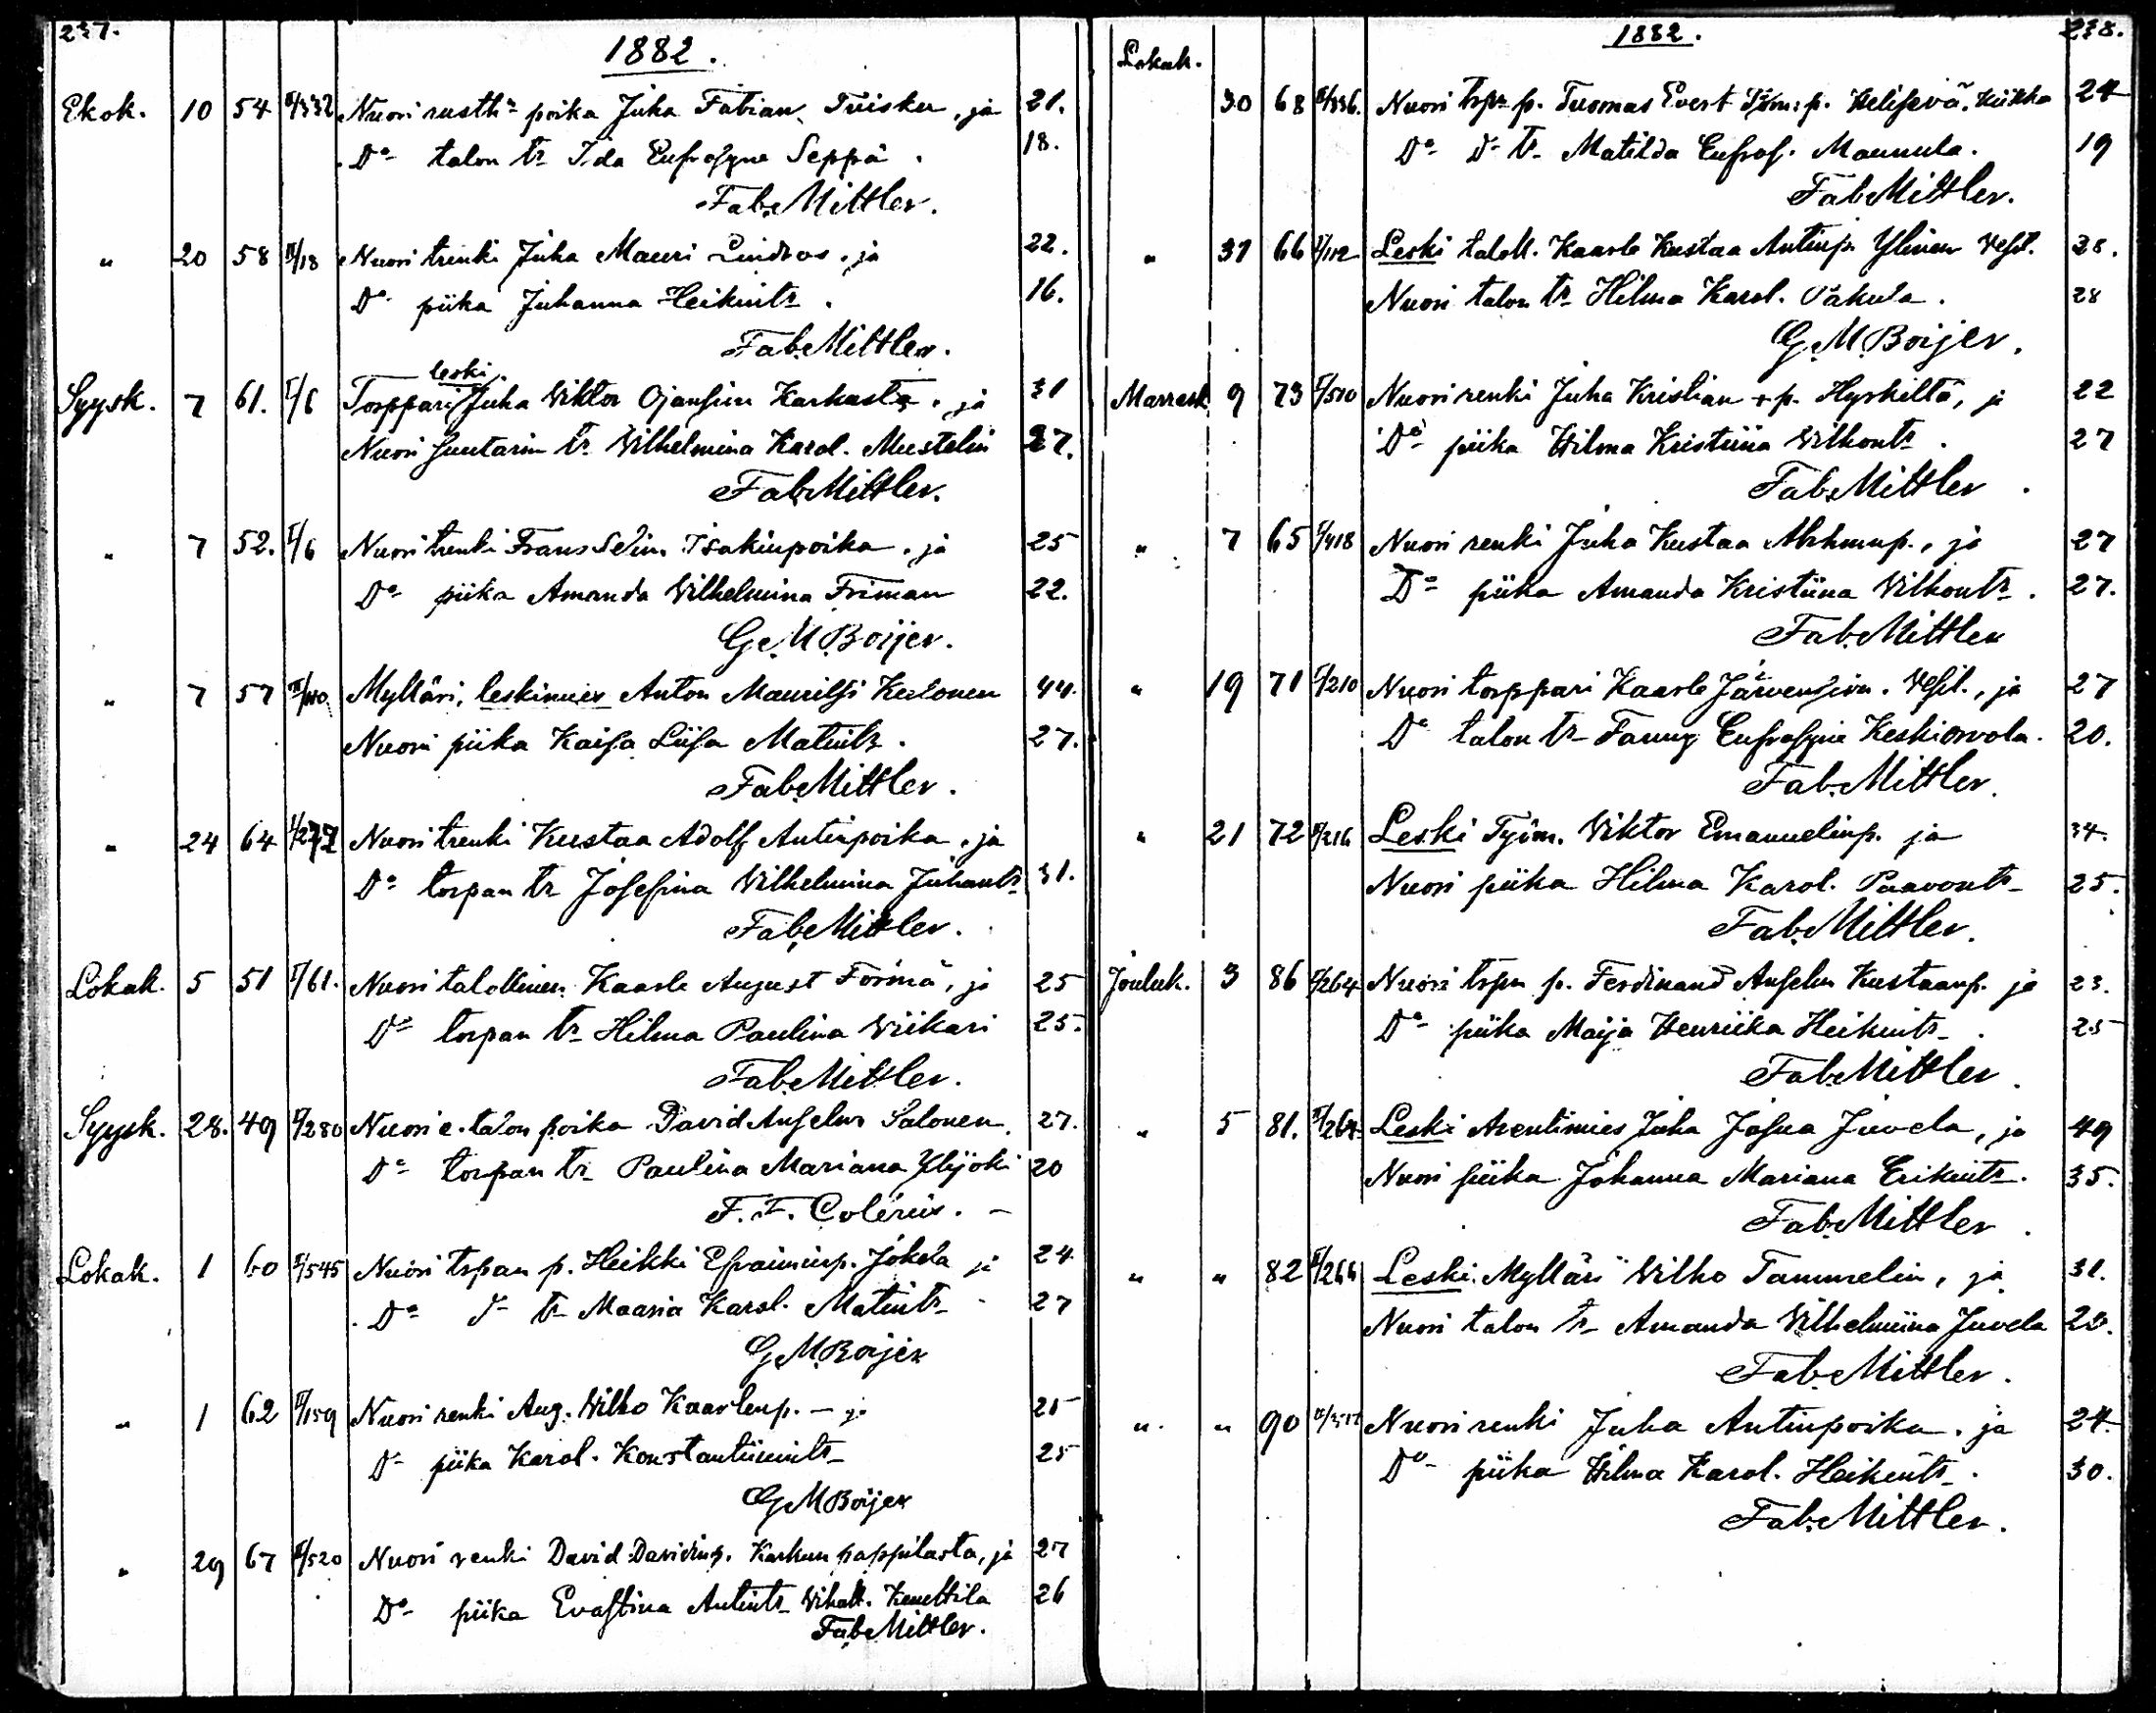 237.
1882.
Ekok. 10 54 II/332 Nuori rusth:n poika Juha Fabian Tuisku, ja 21.
Do talon tr Ida Eufrosyne Seppä. 18.
Fab. Mittler.
" 20 58 II/18 Nuori trenki Juha Mauri Lindroos, ja 22.
Do piika Juhanna Heikintr. 16.
Fab. Mittler.
leski
Syysk. 7 61. I/6 Torppari Juha Wiktor Ojansuu Karkusta, ja 31
Nuori suutarin tr Wilhelmina Karol. Mustelin 27.
Fab. Mittler.
" 7 52. I/6 Nuori trenki Frans Selim Isakinpoika, ja 25
Do piika Amanda Wilhelmina Friman 22.
G. M. Boijer.
" 7 57 Mylläri, leskimies Anton Mauritsi Kulonen 44.
Nuori piika Kaisa Liisa Matintr. 27.
Fab. Mittler.
" 24 64 I/272 Nuori trenki Kustaa Adolf Antinpoika, ja
Do torpan tr Josefina Wilhelmina Juhantr 31.
Fab. Mittler.
Lokak. 5 51 I/61. Nuori talollinen Kaarle August Förmä, ja 25
Do torpan tr Hilma Paulina Wiikari 25.
Fab. Mittler.
Syysk. 28. 49 I/280 Nuori e. talon poika David Anselm Salonen. 27.
Do torpan tr Paulina Mariana Ylijoki 20
F. F. Colérus. –
Lokak. 1 60 I/545 Nuori trpan p. Heikki Efraiminp. Jokela ja 24
Do Do tr Maaria Karol. Matintr 27
G. M. Boijer
" 1 62 II/159 Nuori renki Aug. Wilho Kaarlenp. – ja 25
Do piika Karol. Konstantiinintr 25
G M Boijer
" 29 67 II/520 Nuori renki David Davidinp. Karkun pappilasta, ja 27
Do piika Evastina Antintr Wihatt. Kenttilä 26
Fab. Mittler.
1882. 238.
Lokak.
30 68 II/336. Nuori trpn p. Tuomas Evert Työm:p. Kiikka 24
Do Do tr Matilda Eufros. Mannula. 19
Fab. Mittler.
" 31 66 I/112 Leski taloll. Kaarle Kustaa Antinp. Ylinen Vesil. 38.
Nuori talon tr Hilma Karol. Pakula. 28
G. M. Boijer.
Marrask. 9 73 I/510 Nuori renki Juha Kristian +p. Hyrkiltä, ja 22
Do piika Hilma Kristiina Wilhontr. 27
Fab. Mittler.
" 7 65 I/418 Nuori renki Juha Kustaa Abrhminp., ja 27
Do piika Amanda Kristiina Wilhontr. 27.
Fab. Mittler
" 19 71 I/210 Nuori torppari Kaarle Järvensivu. Vesil., ja 27
Do talon tr Fanny Eufrosyne Keskiorvola. 20.
Fab. Mittler.
" 21 72 II/216 Leski Työm. Wiktor Emanuelinp. ja 34.
Nuori piika Hilma Karol. Paavontr 25.
Fab. Mittler.
Jouluk. 3 86 I/264 Nuori trpn p. Ferdinand Anselm Kustaanp. ja 23.
Do piika Maija Henriika Heikintr. 25
Fab. Mittler.
" 5 81. II/264 Leski Arentimies Juha Josua Juvela, ja 49
Nuori piika Johanna Mariana Erikintr. 35.
Fab. Mittler.
" " 82 II/266 Leski Mylläri Wilho Tammelin, ja 31.
Nuori talon tr Amanda Wilhelmiina Juvela 20.
Fab. Mittler.
" " 90 Nuori renki Juha Antinpoika, ja 24.
Do piika Hilma Karol. Heikintr. 30.
Fab. Mittler.